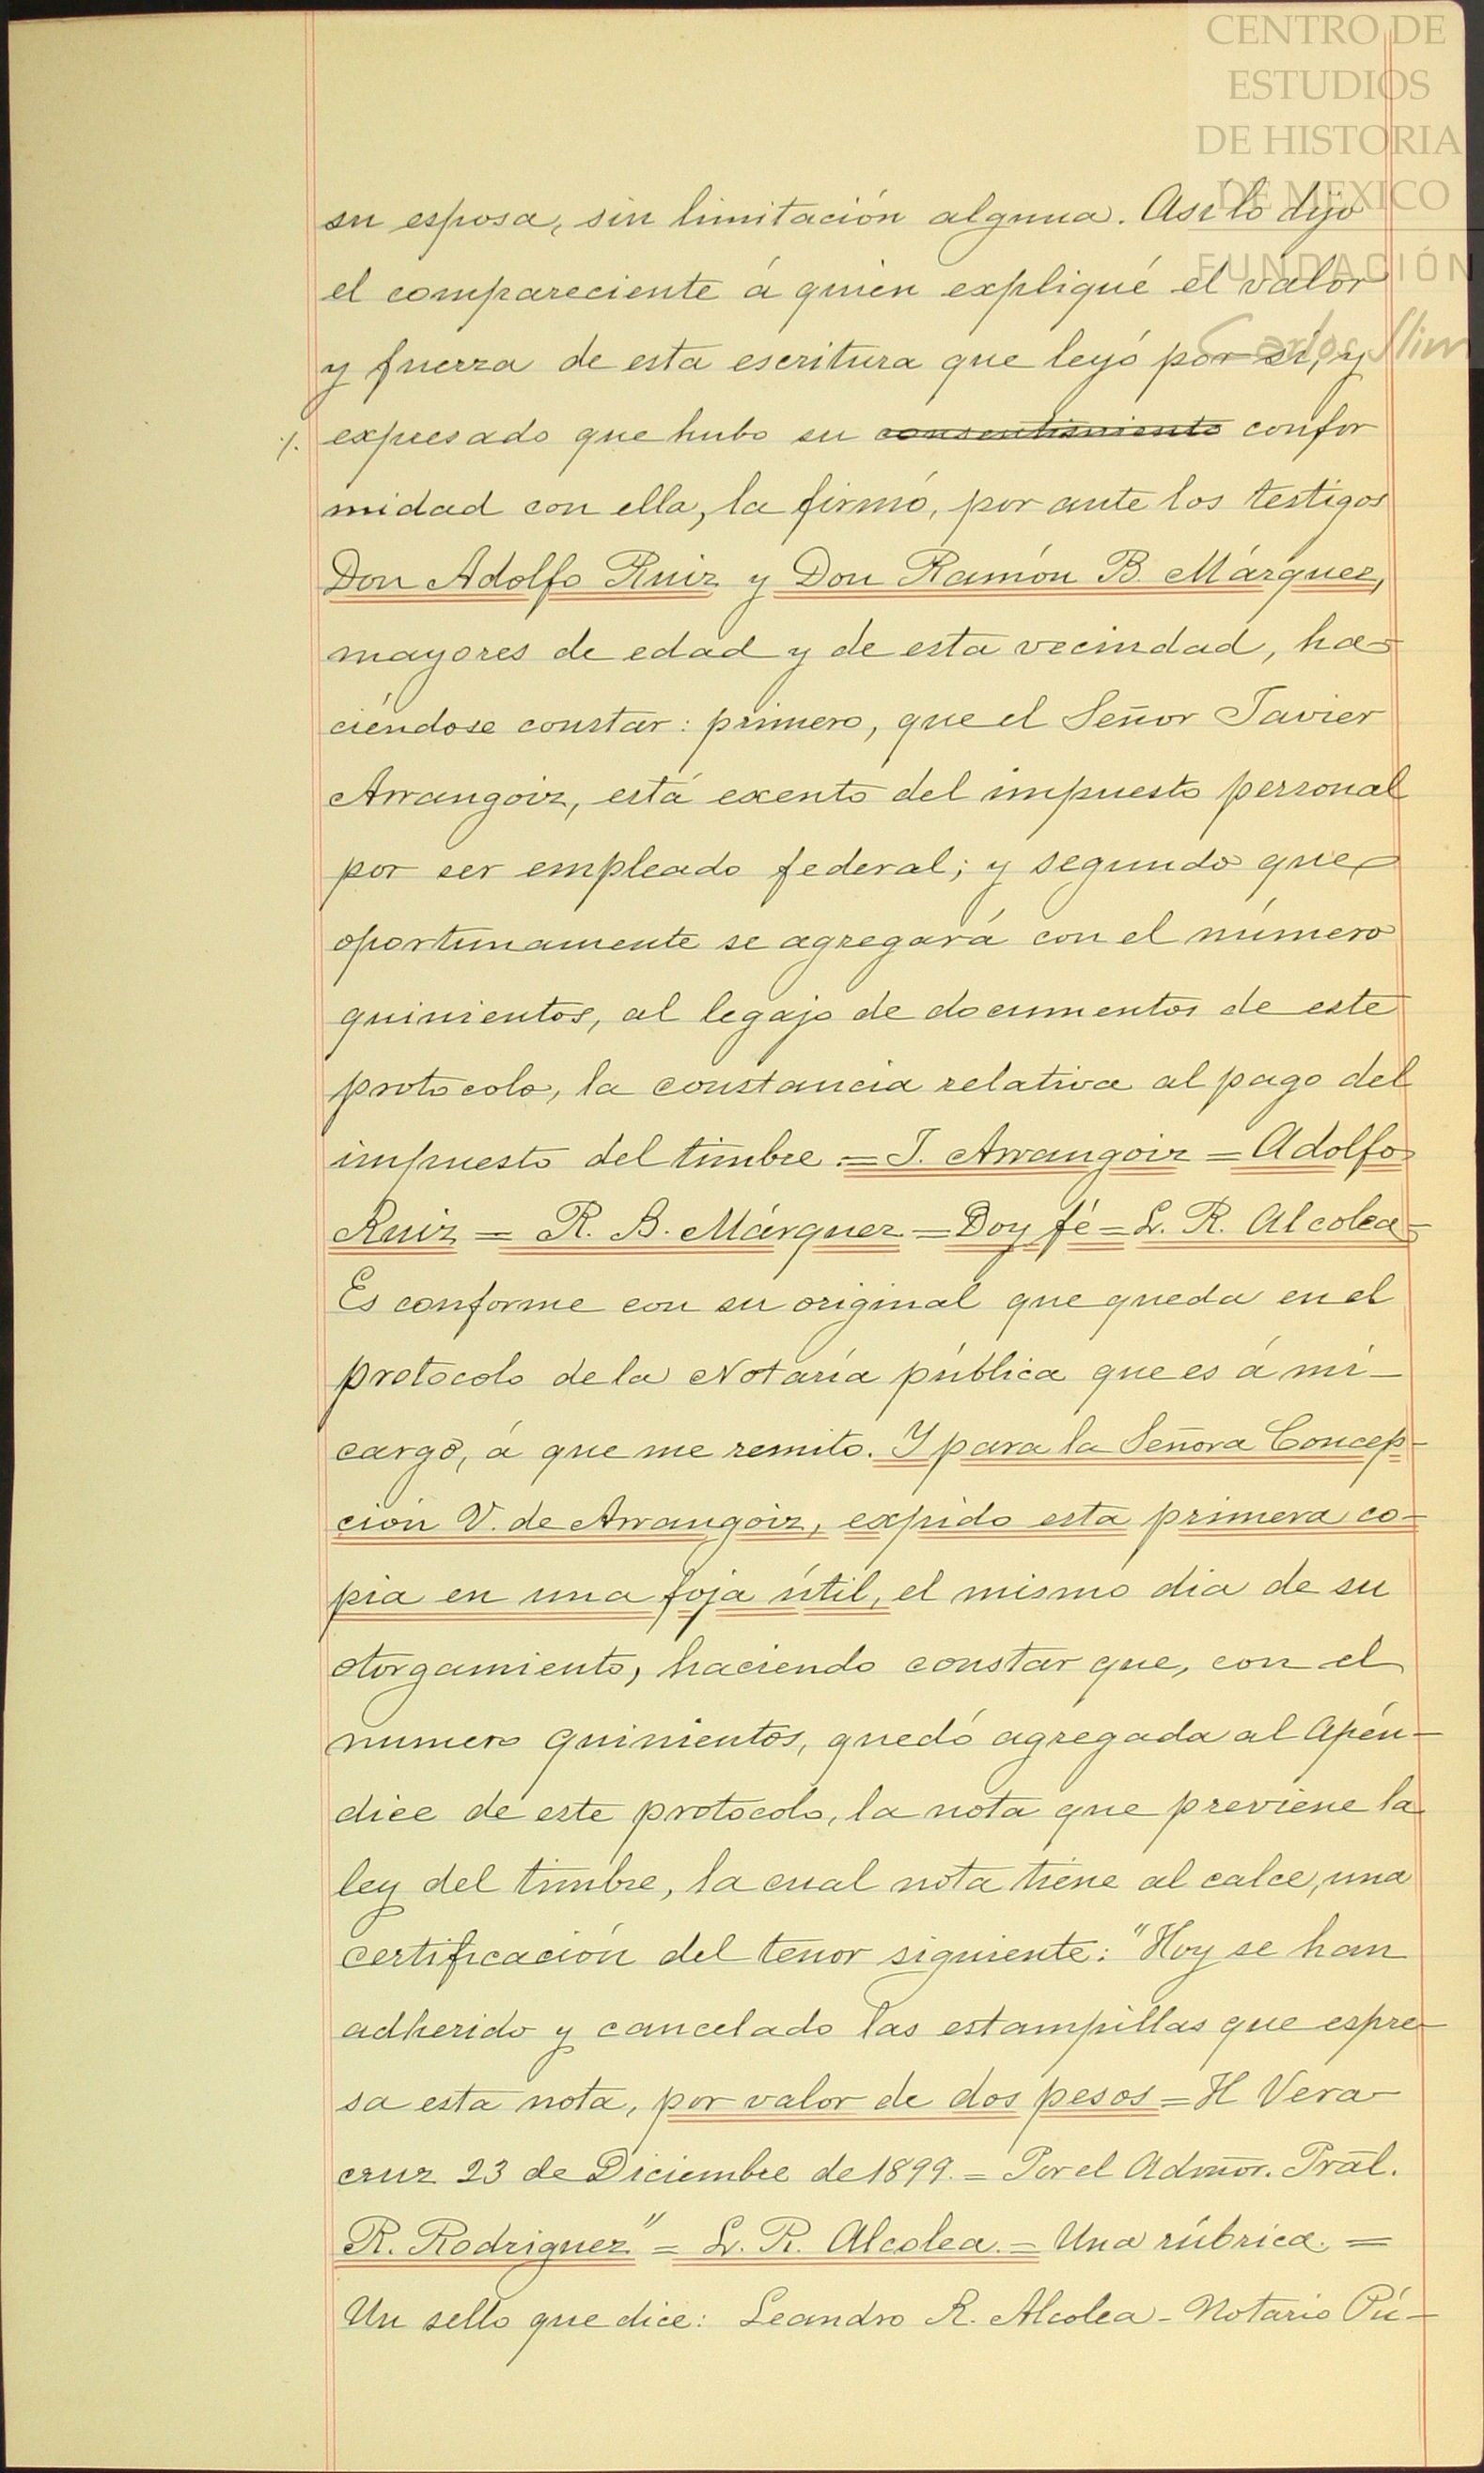 CENTRO DE
ESTUDIOS
DE HISTORIA
DE MEXICO
FUNDACIÓN
Carlos Slim
su esposa, sin limitación alguna. Así lo dijo
el compareciente á quien expliqué el valor
y fuerza de esta escritura que leyó por sí, y
/. expresado que hubo su consentimiento confor
midad con ella, la firmó, por ante los testigos
Don Adolfo Ruiz y Don Ramón B. Márquez,
mayores de edad y de esta vecindad, ha-
ciéndose constar: primero, que el Señor Javier
Arrangoiz, está exento del impuesto personal
por ser empleado federal; y segundo que
oportunamente se agregará con el número
quinientos, al legajo de documentos de este
protocolo, la constancia relativa al pago del
impuesto del timbre.= J. Arrangoiz = Adolfo
Ruiz = R. B. Márquez = Doy fé = L. R. Alcolea =
Es conforme con su original que queda en el
protocolo de la Notaría pública que es á mi-
cargo, á que me remito. Y para la Señora Concep-
ción V. de Arrangoiz, expido esta primera co-
pia en una foja útil, el mismo dia de su
otorgamiento, haciendo constar que, con el
numero quinientos, quedó agregada al Apén-
dice de este protocolo, la nota que previene la
ley del timbre, la cual nota tiene al calce, una
certificación del tenor siguiente: "Hoy se han
adherido y cancelado las estampillas que espre-
sa esta nota, por valor de dos pesos = H Vera-
cruz 23 de Diciembre de 1899. = Por el Admõr. Prãl.
R. Rodriguez" = L. R. Alcolea. = Una rúbrica. =
Un sello que dice: Leandro R. Alcolea - Notario Pú-